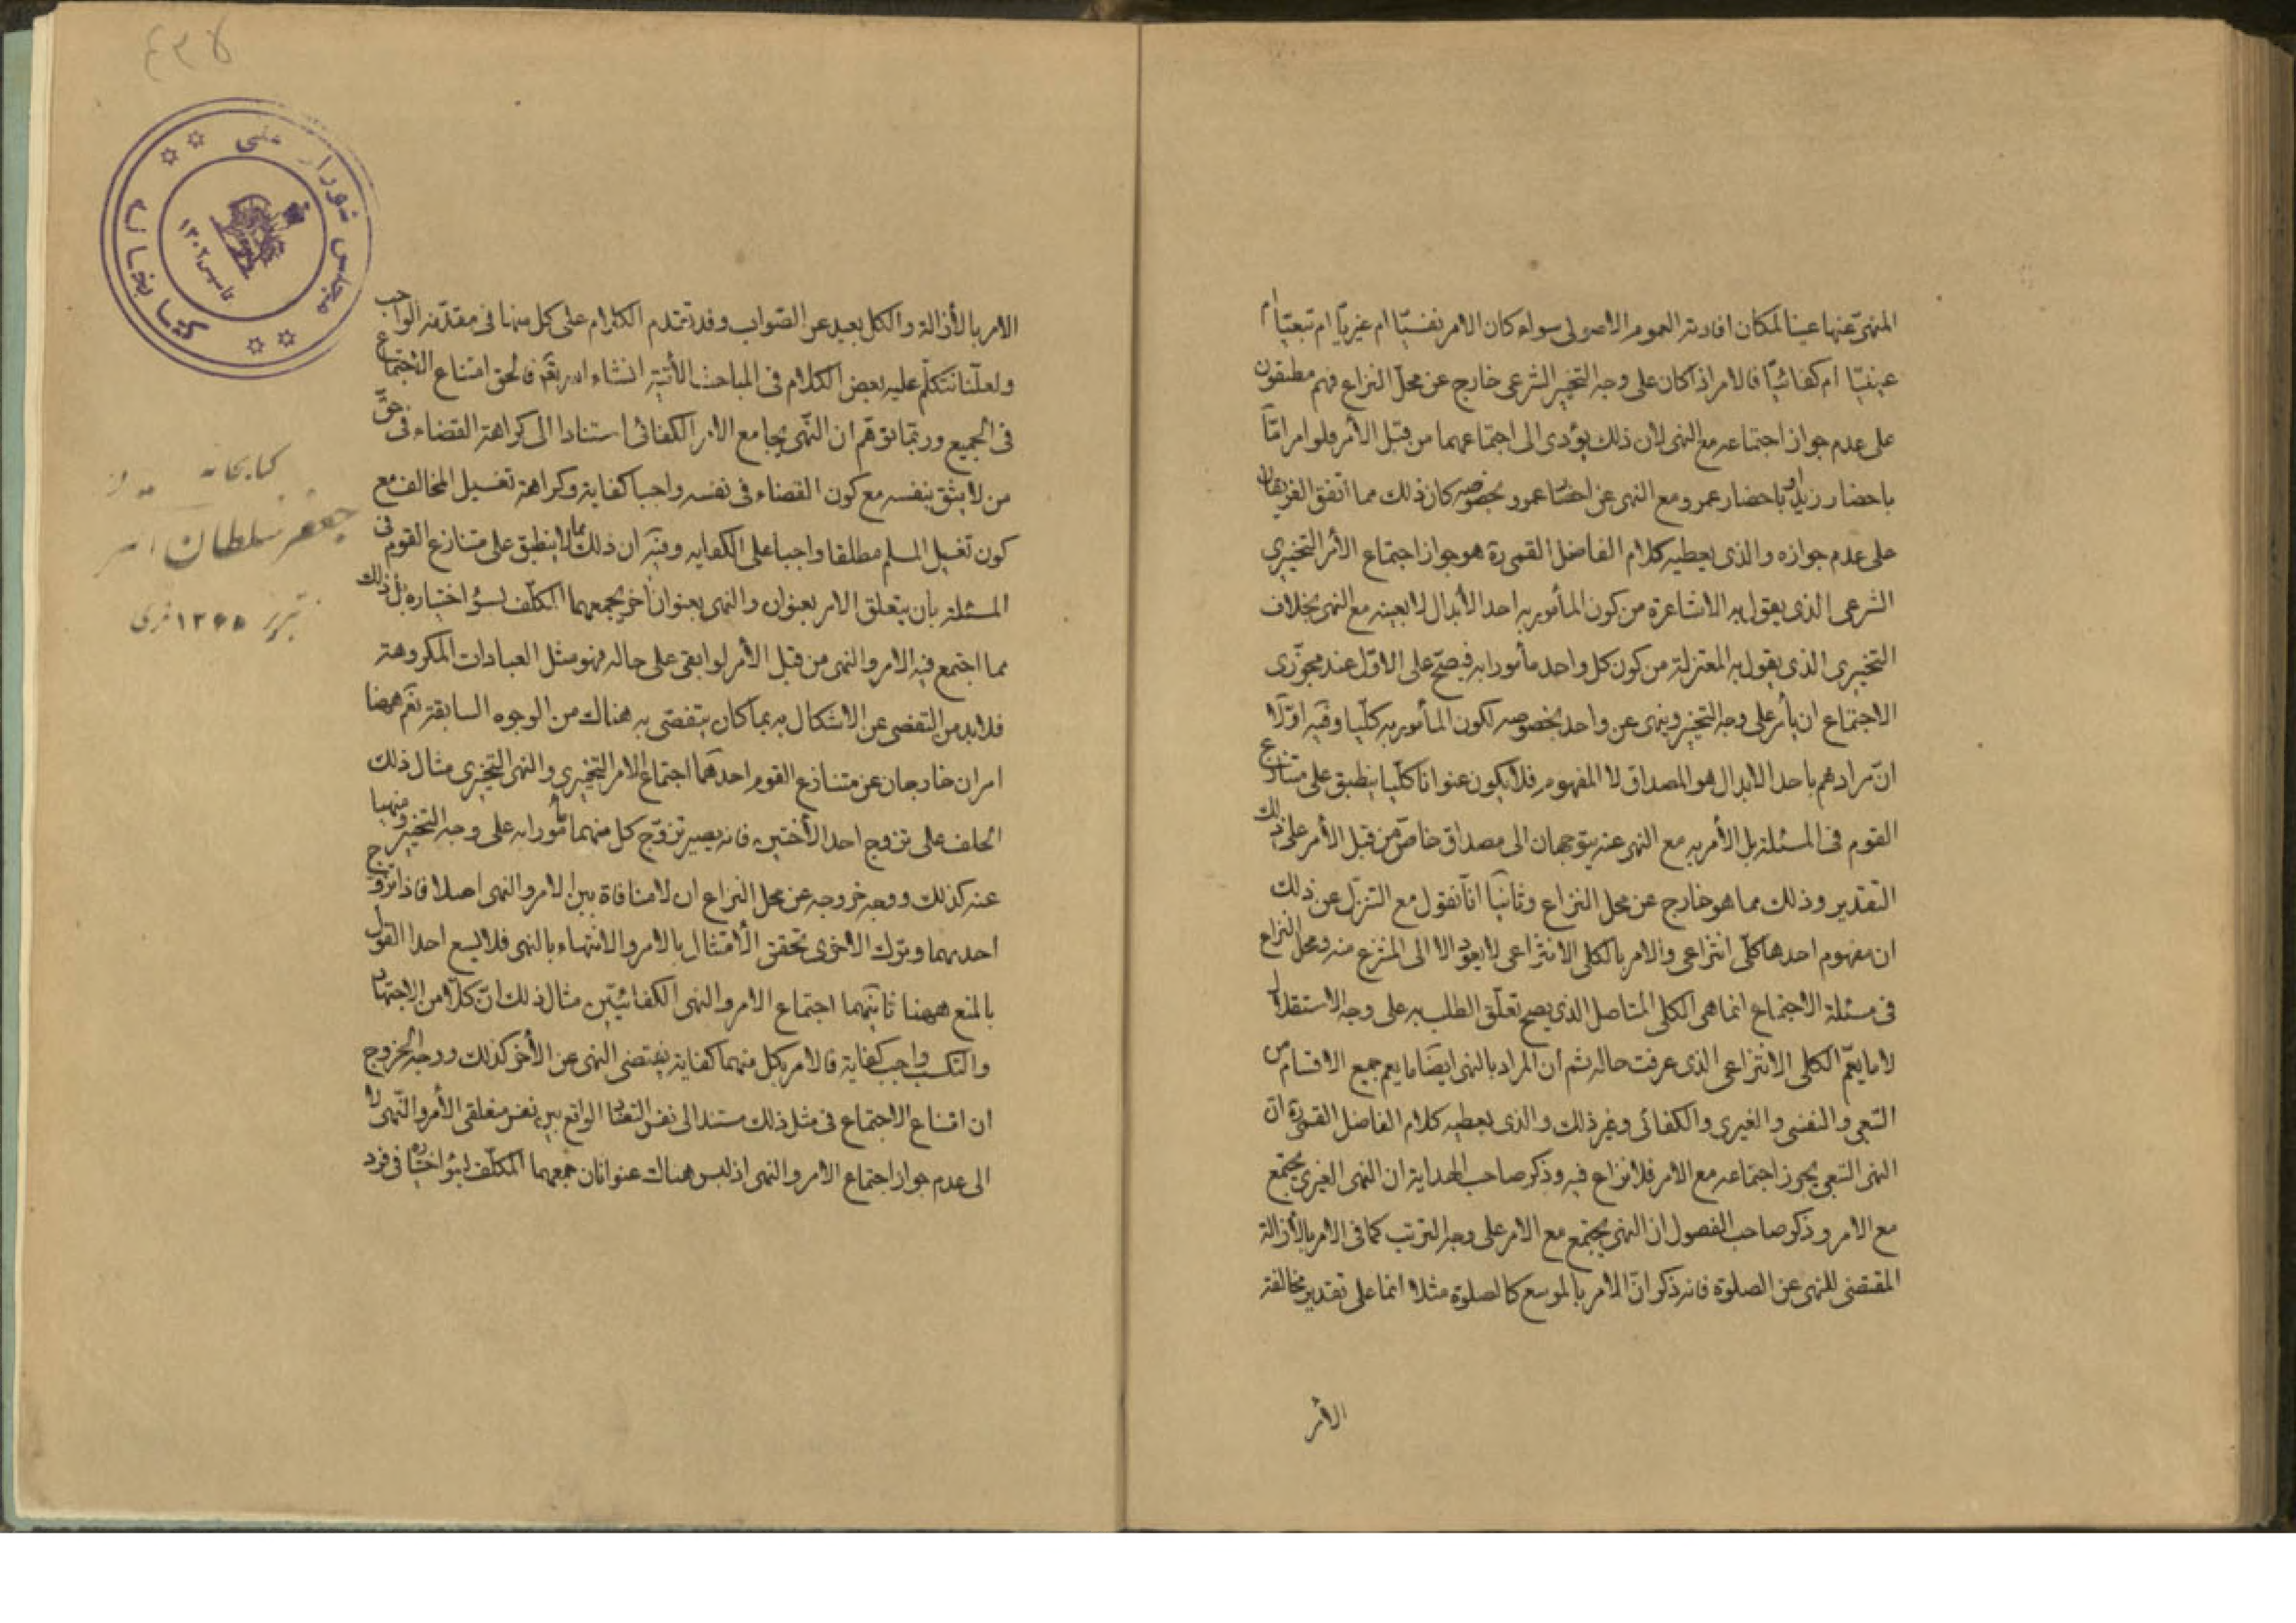 المنهى عنها عينا لمكان افادته العموم الاصولى سواء كان الامر نفسيّا ام غيريّا ام تبعيّا ام
عينيّا ام كفائيّا فالامر اذا كان على وجه التخيير الشرعى خارج عن محلّ النزاع فهم مطبقون
على عدم جواز اجتماعه مع النهى لان ذلك يؤدى الى اجتماعهما من قبل الأمر فلو امر امّا
باحضار زيد او باحضار عمرو مع النهى عن احضار عمرو بخصوصه كان ذلك مما اتفق الفريقان
على عدم جوازه والذى يعطيه كلام الفاضل القمى ره هو جواز اجتماع الأمر التخييرى
الشرعى الذى يقول به الاشاعرة من كون المأمور به احد الأبدال لا بعينه مع النهى بخلاف
التخييرى الذى يقول به المعتزلة من كون كل واحد مأمورا به فيصحّ على الاوّل عند مجوّزى
الاجتماع ان يأمر على وجه التخيير وينهى عن واحد بخصوصه لكون المأمور به كلّيا وفيه اوّلا
انّ مرادهم باحد الابدال هو المصداق لا المفهوم فلا يكون عنوانا كلّيا ينطبق على متنازع
القوم فى المسئلة بل الأمر به مع النهى عنه يتوجهان الى مصداق خاصّ من قبل الأمر على ذلك
التقدير وذلك مما هو خارج عن محل النزاع وثانيا انّا نقول مع التنزّل عن ذلك
ان مفهوم احدها كلّى انتزاعى والامر بالكلى الانتزاعى لا يعود الا الى المنتزع منه ومحل النزاع
فى مسئلة الاجتماع انما هى الكلى المتاصل الذى يصح تعلّق الطلب به على وجه الاستقلال
لا ما يعمّ الكلى الانتزاعى الذى عرفت حاله ثم ان المراد بالنهى ايضا ما يعم جميع الاقسام من
التبعى والنفسى والغيرى والكفائى وغير ذلك والذى يعطيه كلام الفاضل القمى ره انّ
النهى التبعى يجوز اجتماعه مع الامر فلا نزاع فيه وذكر صاحب الهداية ان النهى الغيرى يجتمع
مع الامر وذكر صاحب الفصول ان النهى يجتمع مع الامر على وجه الترتب كما فى الامر بالأزالة
المقتضى للنهى عن الصلوة فانه ذكر انّ الأمر بالموسع كالصلوة مثلا انما على تقدير مخالفة
الأمر
الامر بالأزالة والكل بعيد عن الصّواب وقد تقدم الكلام على كل منها فى مقدّمة الواجب
ولعلّنا نتكلّم عليه بعض الكلام فى المباحث الأتية انشاء الله تعالى فالحق امتناع الاجتماع
فى الجميع وربّما توهّم ان النّهى يجامع الامر الكفائى استنادا الى كراهة القضاء فى حقّ
من لا يثق بنفسه مع كون القضاء فى نفسه واجبا كفاية وكراهة تغسيل المخالف مع
كون تغسيل المسلم مطلقا واجبا على الكفايه وفيه ان ذلك مما لا ينطبق على متنازع القوم فى
المسئلة بأن يتعلق الامر بعنوان والنهى بعنوان اخر يجمعهما المكلّف لسوء اختياره بل ذلك
مما اجتمع فيه الامر والنهى من قبل الأمر لو ابقى على حاله فهو مثل العبادات المكروهة
فلا بد من التفصى عن الاشكال به بما كان يتفصّى به هناك من الوجوه السابقة نعم ههنا
امران خارجان عن متنازع القوم احدهما اجتماع الامر التخييرى والنهى التخييرى مثال ذلك
الحلف على تزوج احد الأختين فانه يصير تزوّج كل منهما مأمورا به على وجه التخيير ومنهيا
عنه كذلك ووجه خروجه عن محل النزاع ان لا منافاة بين الامر والنهى اصلا فاذا تزوج
احديهما وترك الاخرى تحقق الأمتثال بالامر والانتهاء بالنهى فلا يسع احدا القول
بالمنع ههنا ثانيهما اجتماع الامر والنهى الكفائيّين مثال ذلك انّ كلّا من الاجتهاد
والتكسب واجب كفاية فالامر بكل منهما كفاية يقتضى النهى عن الأخر كذلك ووجه الخروج
ان امتناع الاجتماع فى مثل ذلك مستند الى نفس التضاد الواقع بين نفس متعلقى الأمر والنّهى لا
الى عدم جواز اجتماع الامر والنهى اذ ليس هناك عنوانان جمعهما المكلّف لسوء اختياره فى فرد
مجلس شورای ملی
کتابخانه
تاسیس ۱۳۰۲
کتابخانه
جعفر سلطان
تبریز ۱۲۶۵